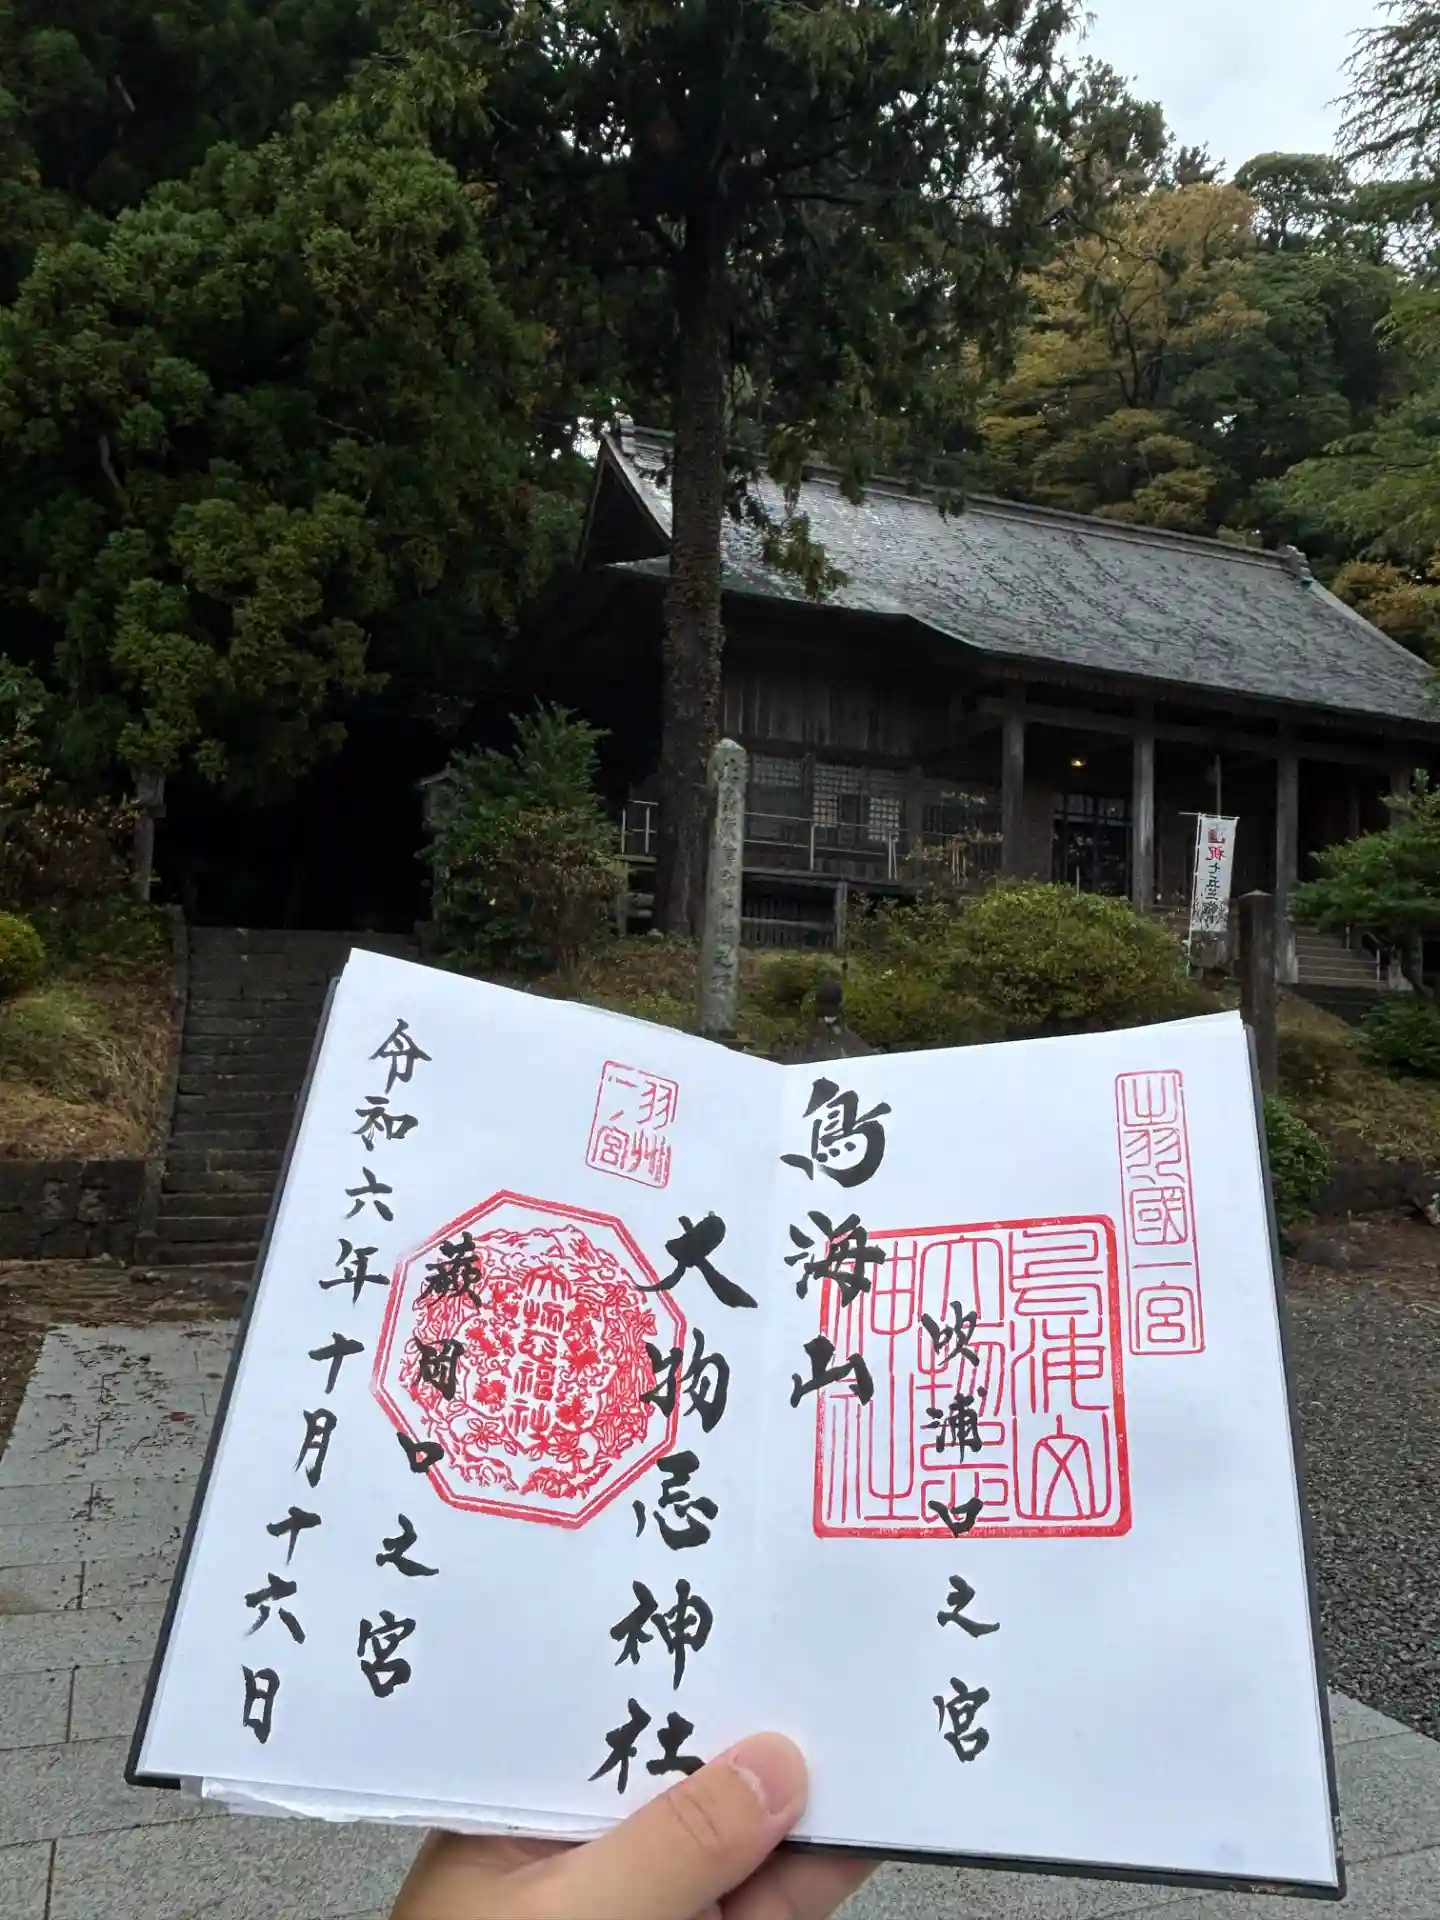 出羽國一宮
鳥海山
大物忌
神社
吹浦口之宮
鳥海山
大物忌神社
羽州
一ノ宮
蕨岡口之宮
令和六年十月十六日
祝七五三詣